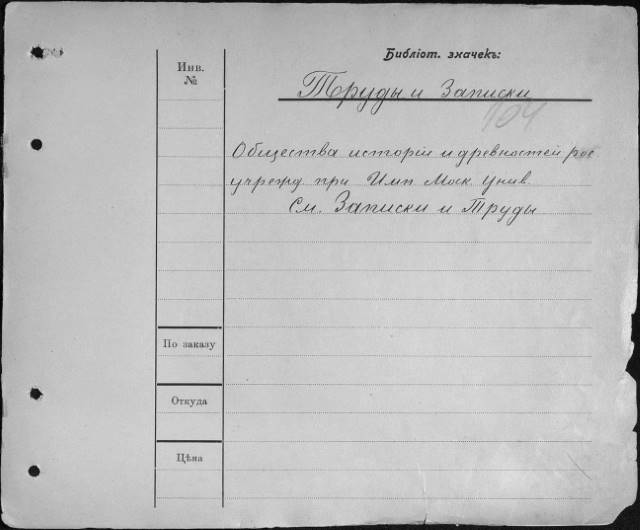 Библіот. значекъ:
Инв.
№
Труды и Записки
104
Общества исторіи и древностей рос
учрежд. при Имп Моск Унив.
См. Записки и Труды
По заказу
Откуда
Цѣна